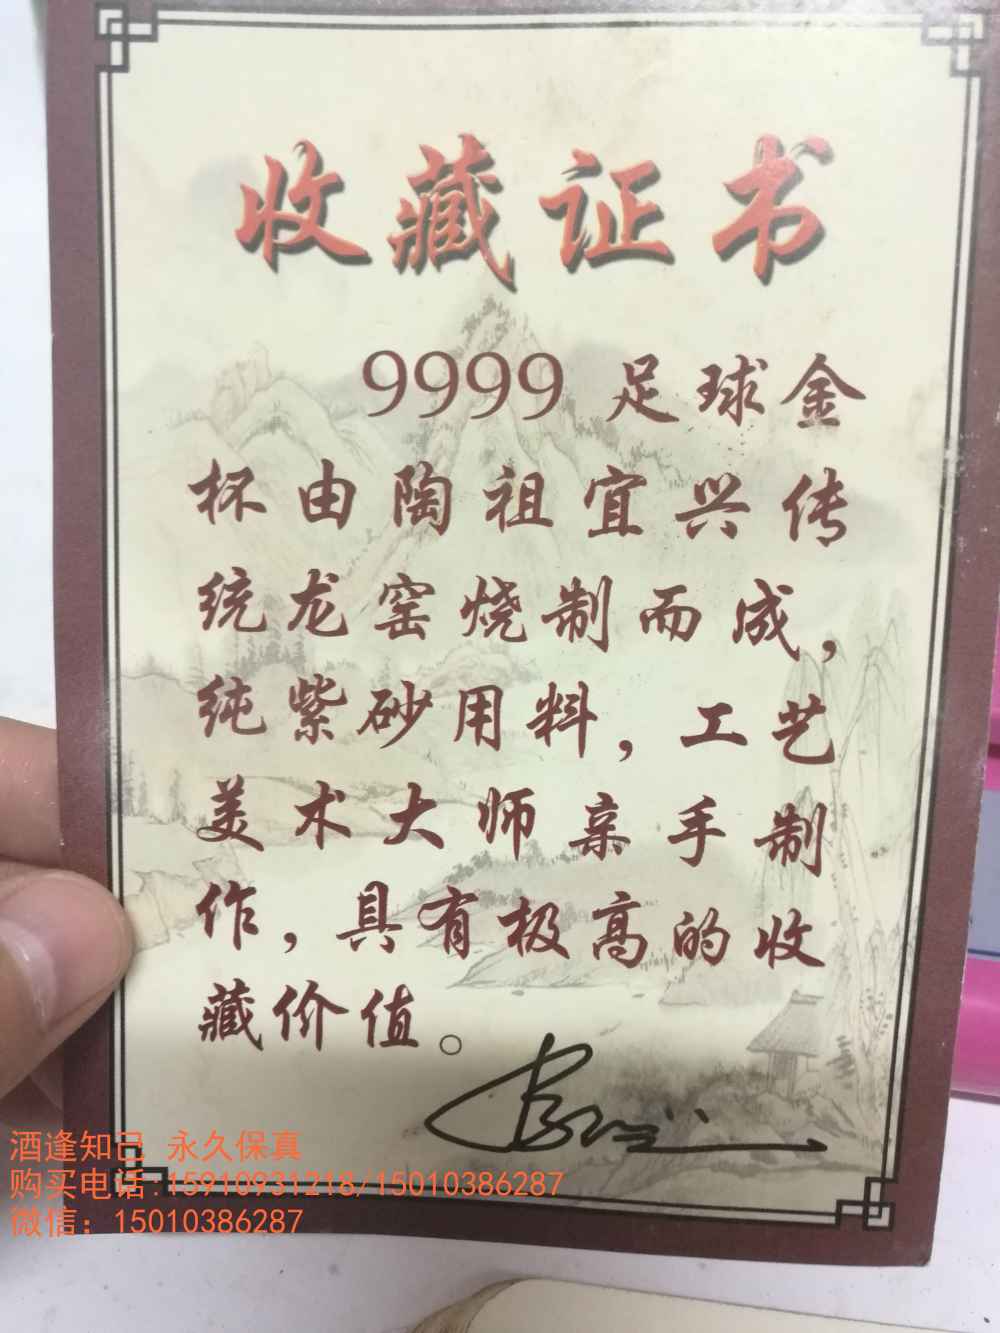 收藏证书
9999 足球金
杯由陶祖宜兴传
统龙窑烧制而成，
纯紫砂用料，工艺
美术大师亲手制
作，具有极高的收
藏价值。
酒逢知己 永久保真
购买电话:15910931218/15010386287
微信：15010386287